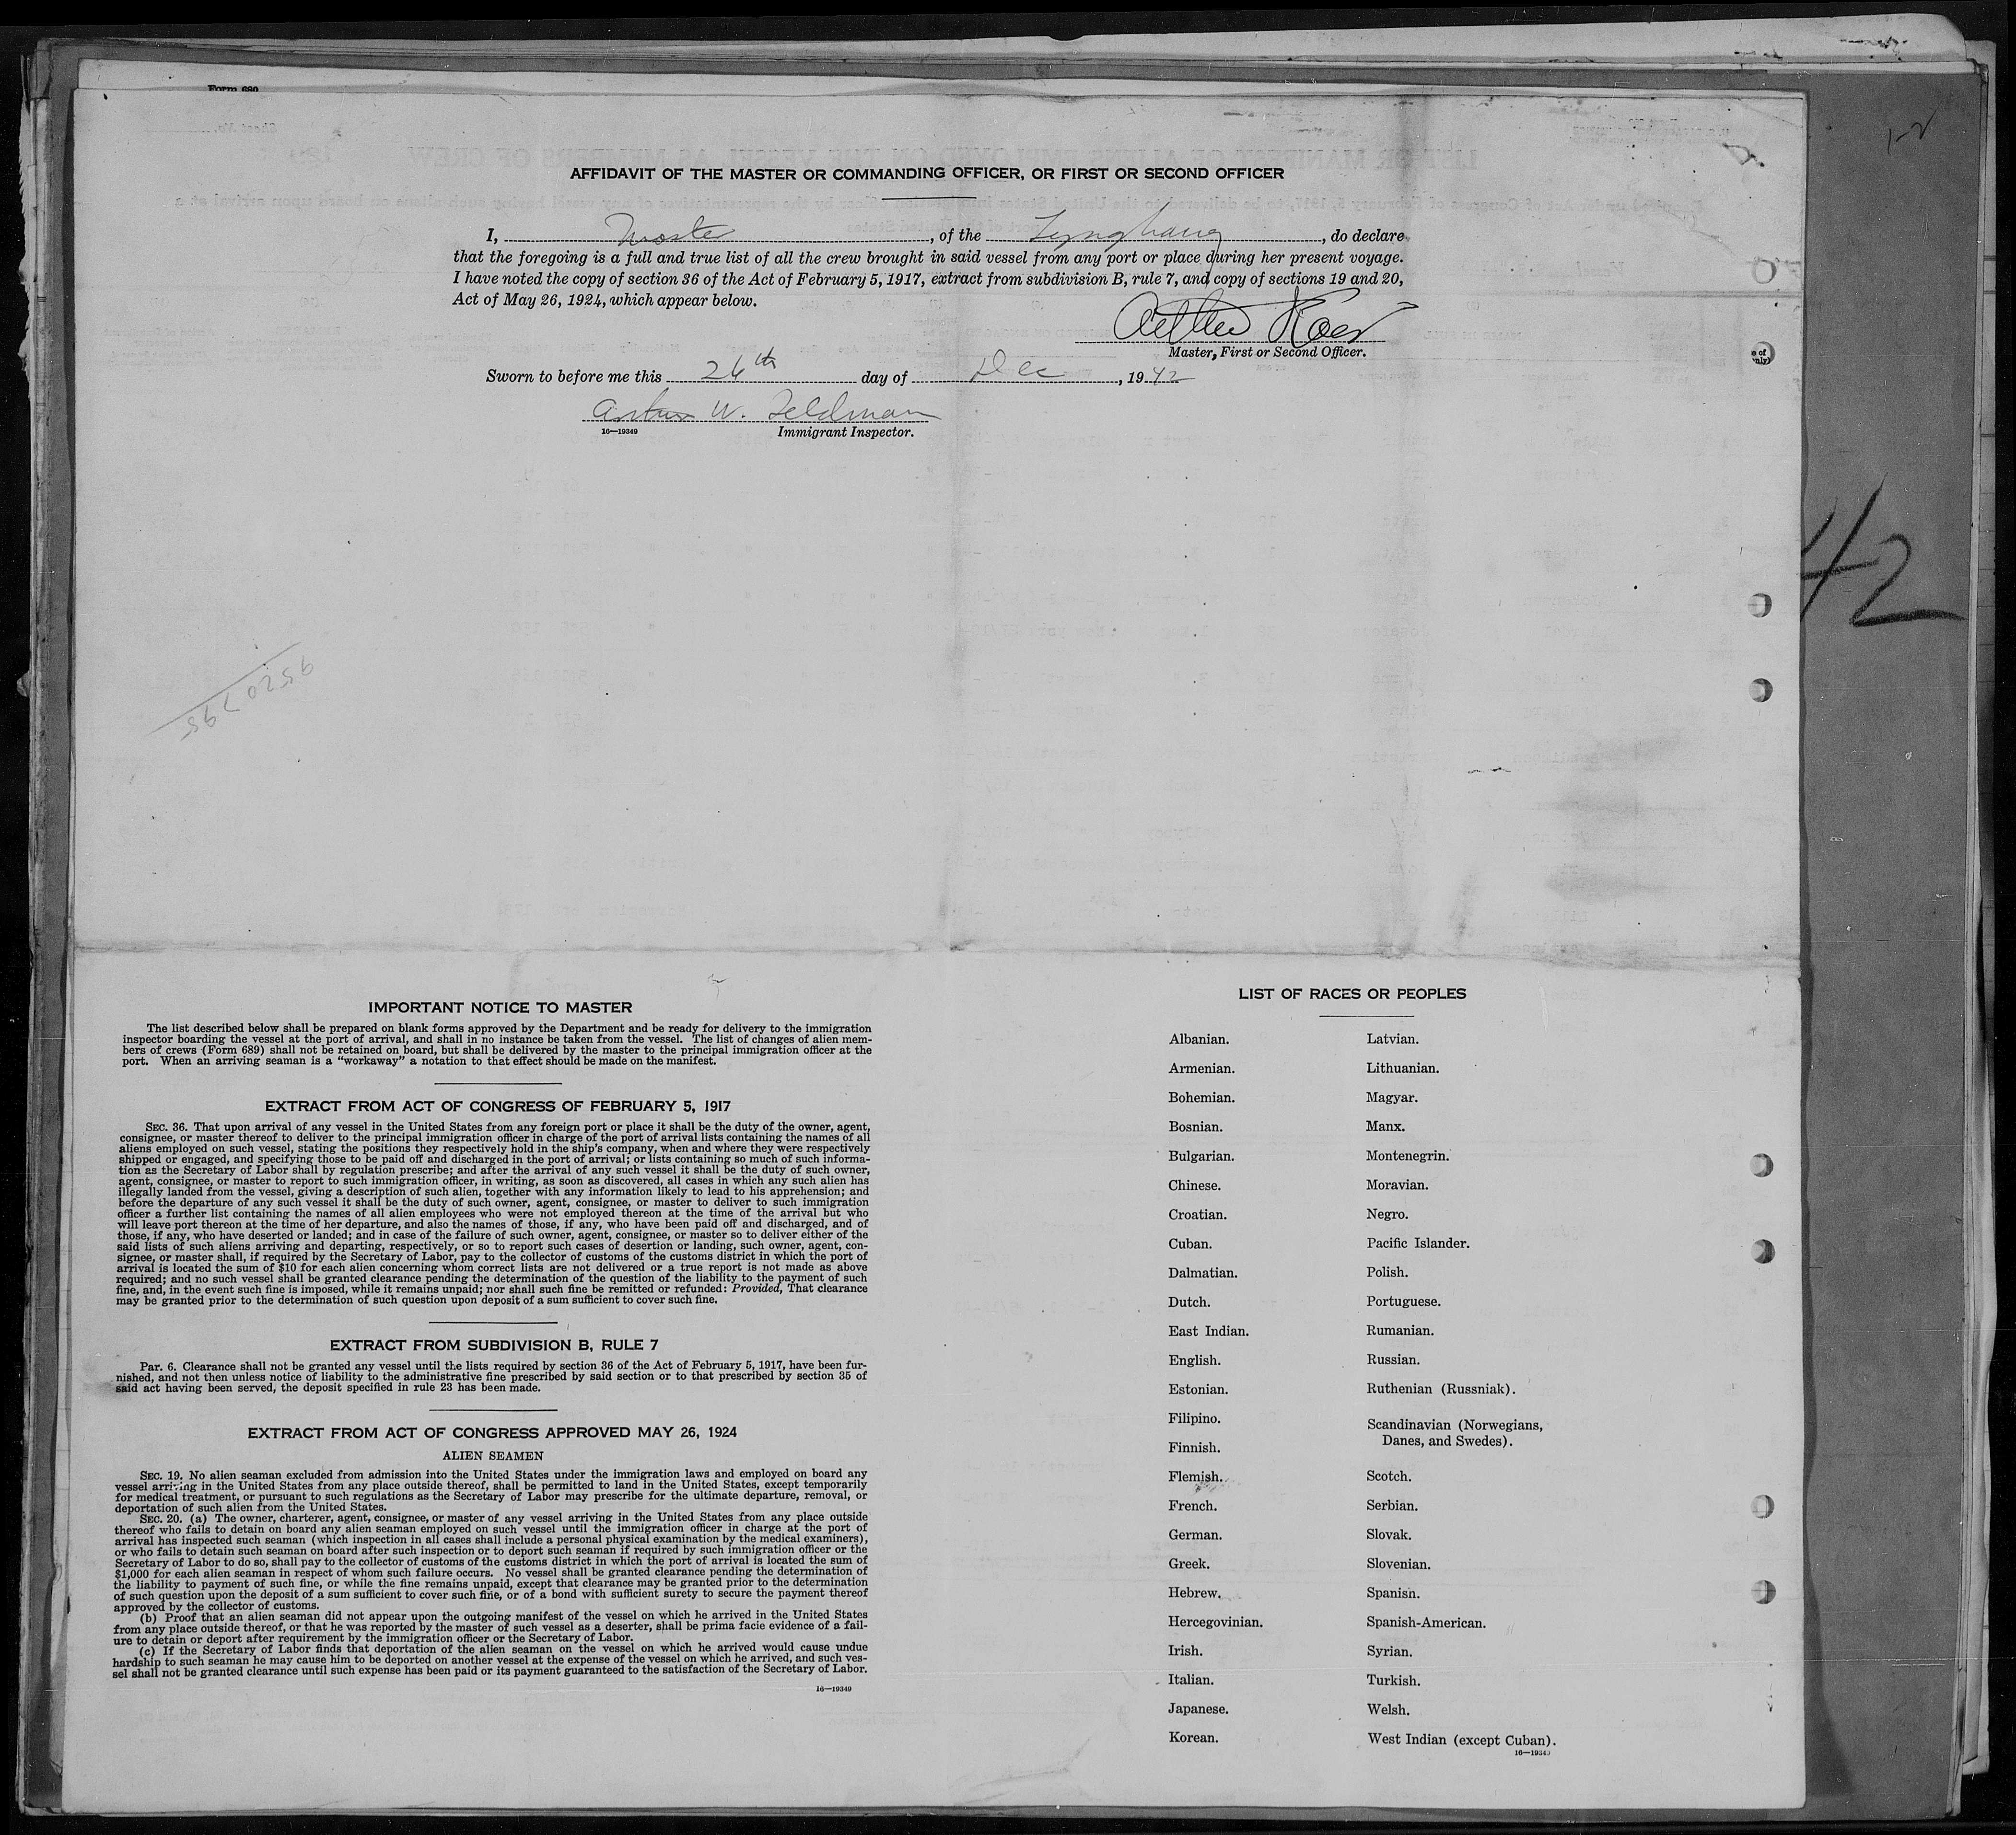 Form 689
AFFIDAVIT OF THE MASTER OR COMMANDING OFFICER, OR FIRST OR SECOND OFFICER
I, Master, of the Lynghaug, do declare
that the foregoing is a full and true list of all the crew brought in said vessel from any port or place during her present voyage.
I have noted the copy of section 36 of the Act of February 5, 1917, extract from subdivision B, rule 7, and copy of sections 19 and 20,
Act of May 26, 1924, which appear below.
Master, First or Second Officer.
Sworn to before me this 26th day of Dec, 1942
W. Feldman
16—19349 Immigrant Inspector.
42
IMPORTANT NOTICE TO MASTER
The list described below shall be prepared on blank forms approved by the Department and be ready for delivery to the immigration
inspector boarding the vessel at the port of arrival, and shall in no instance be taken from the vessel. The list of changes of alien mem-
bers of crews (Form 689) shall not be retained on board, but shall be delivered by the master to the principal immigration officer at the
port. When an arriving seaman is a “workaway” a notation to that effect should be made on the manifest.
EXTRACT FROM ACT OF CONGRESS OF FEBRUARY 5, 1917
SEC. 36. That upon arrival of any vessel in the United States from any foreign port or place it shall be the duty of the owner, agent,
consignee, or master thereof to deliver to the principal immigration officer in charge of the port of arrival lists containing the names of all
aliens employed on such vessel, stating the positions they respectively hold in the ship's company, when and where they were respectively
shipped or engaged, and specifying those to be paid off and discharged in the port of arrival; or lists containing so much of such informa-
tion as the Secretary of Labor shall by regulation prescribe; and after the arrival of any such vessel it shall be the duty of such owner,
agent, consignee, or master to report to such immigration officer, in writing, as soon as discovered, all cases in which any such alien has
illegally landed from the vessel, giving a description of such alien, together with any information likely to lead to his apprehension; and
before the departure of any such vessel it shall be the duty of such owner, agent, consignee, or master to deliver to such immigration
officer a further list containing the names of all alien employees who were not employed thereon at the time of the arrival but who
will leave port thereon at the time of her departure, and also the names of those, if any, who have been paid off and discharged, and of
those, if any, who have deserted or landed; and in case of the failure of such owner, agent, consignee, or master so to deliver either of the
said lists of such aliens arriving and departing, respectively, or so to report such cases of desertion or landing, such owner, agent, con-
signee, or master shall, if required by the Secretary of Labor, pay to the collector of customs of the customs district in which the port of
arrival is located the sum of $10 for each alien concerning whom correct lists are not delivered or a true report is not made as above
required; and no such vessel shall be granted clearance pending the determination of the question of the liability to the payment of such
fine, and, in the event such fine is imposed, while it remains unpaid; nor shall such fine be remitted or refunded: Provided, That clearance
may be granted prior to the determination of such question upon deposit of a sum sufficient to cover such fine.
EXTRACT FROM SUBDIVISION B, RULE 7
Par. 6. Clearance shall not be granted any vessel until the lists required by section 36 of the Act of February 5, 1917, have been fur-
nished, and not then unless notice of liability to the administrative fine prescribed by said section or to that prescribed by section 35 of
said act having been served, the deposit specified in rule 23 has been made.
EXTRACT FROM ACT OF CONGRESS APPROVED MAY 26, 1924
ALIEN SEAMEN
SEC. 19. No alien seaman excluded from admission into the United States under the immigration laws and employed on board any
vessel arriving in the United States from any place outside thereof, shall be permitted to land in the United States, except temporarily
for medical treatment, or pursuant to such regulations as the Secretary of Labor may prescribe for the ultimate departure, removal, or
deportation of such alien from the United States.
SEC. 20. (a) The owner, charterer, agent, consignee, or master of any vessel arriving in the United States from any place outside
thereof who fails to detain on board any alien seaman employed on such vessel until the immigration officer in charge at the port of
arrival has inspected such seaman (which inspection in all cases shall include a personal physical examination by the medical examiners),
or who fails to detain such seaman on board after such inspection or to deport such seaman if required by such immigration officer or the
Secretary of Labor to do so, shall pay to the collector of customs of the customs district in which the port of arrival is located the sum of
$1,000 for each alien seaman in respect of whom such failure occurs. No vessel shall be granted clearance pending the determination of
the liability to payment of such fine, or while the fine remains unpaid, except that clearance may be granted prior to the determination
of such question upon the deposit of a sum sufficient to cover such fine, or of a bond with sufficient surety to secure the payment thereof
approved by the collector of customs.
(b) Proof that an alien seaman did not appear upon the outgoing manifest of the vessel on which he arrived in the United States
from any place outside thereof, or that he was reported by the master of such vessel as a deserter, shall be prima facie evidence of a fail-
ure to detain or deport after requirement by the immigration officer or the Secretary of Labor.
(c) If the Secretary of Labor finds that deportation of the alien seaman on the vessel on which he arrived would cause undue
hardship to such seaman he may cause him to be deported on another vessel at the expense of the vessel on which he arrived, and such ves-
sel shall not be granted clearance until such expense has been paid or its payment guaranteed to the satisfaction of the Secretary of Labor.
16—19349
LIST OF RACES OR PEOPLES
Albanian.
Armenian.
Bohemian.
Bosnian.
Bulgarian.
Chinese.
Croatian.
Cuban.
Dalmatian.
Dutch.
East Indian.
English.
Estonian.
Filipino.
Finnish.
Flemish.
French.
German.
Greek.
Hebrew.
Hercegovinian.
Irish.
Italian.
Japanese.
Korean.
Latvian.
Lithuanian.
Magyar.
Manx.
Montenegrin.
Moravian.
Negro.
Pacific Islander.
Polish.
Portuguese.
Rumanian.
Russian.
Ruthenian (Russniak).
Scandinavian (Norwegians,
Danes, and Swedes).
Scotch.
Serbian.
Slovak.
Slovenian.
Spanish.
Spanish-American.
Syrian.
Turkish.
Welsh.
West Indian (except Cuban).
16—19349